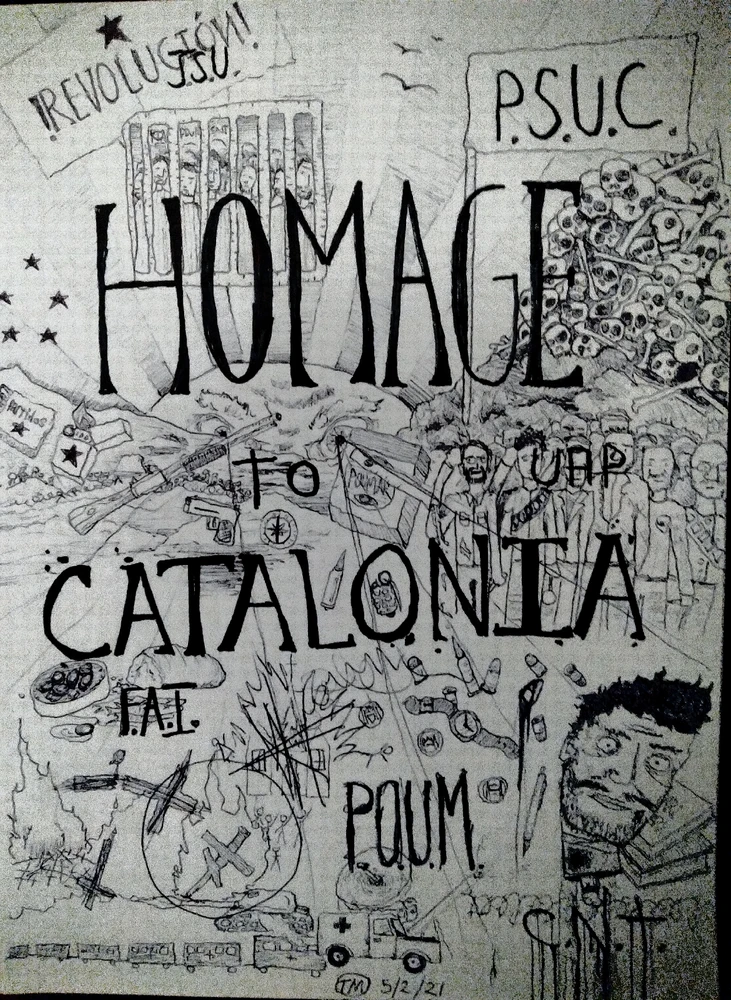 ¡REVOLUCIÓN!
J.S.U.
P.S.U.C.
HOMAGE
TO
UHP
CATALONIA
F.A.I.
P.O.U.M.
C.N.T.
TM 5/2/21